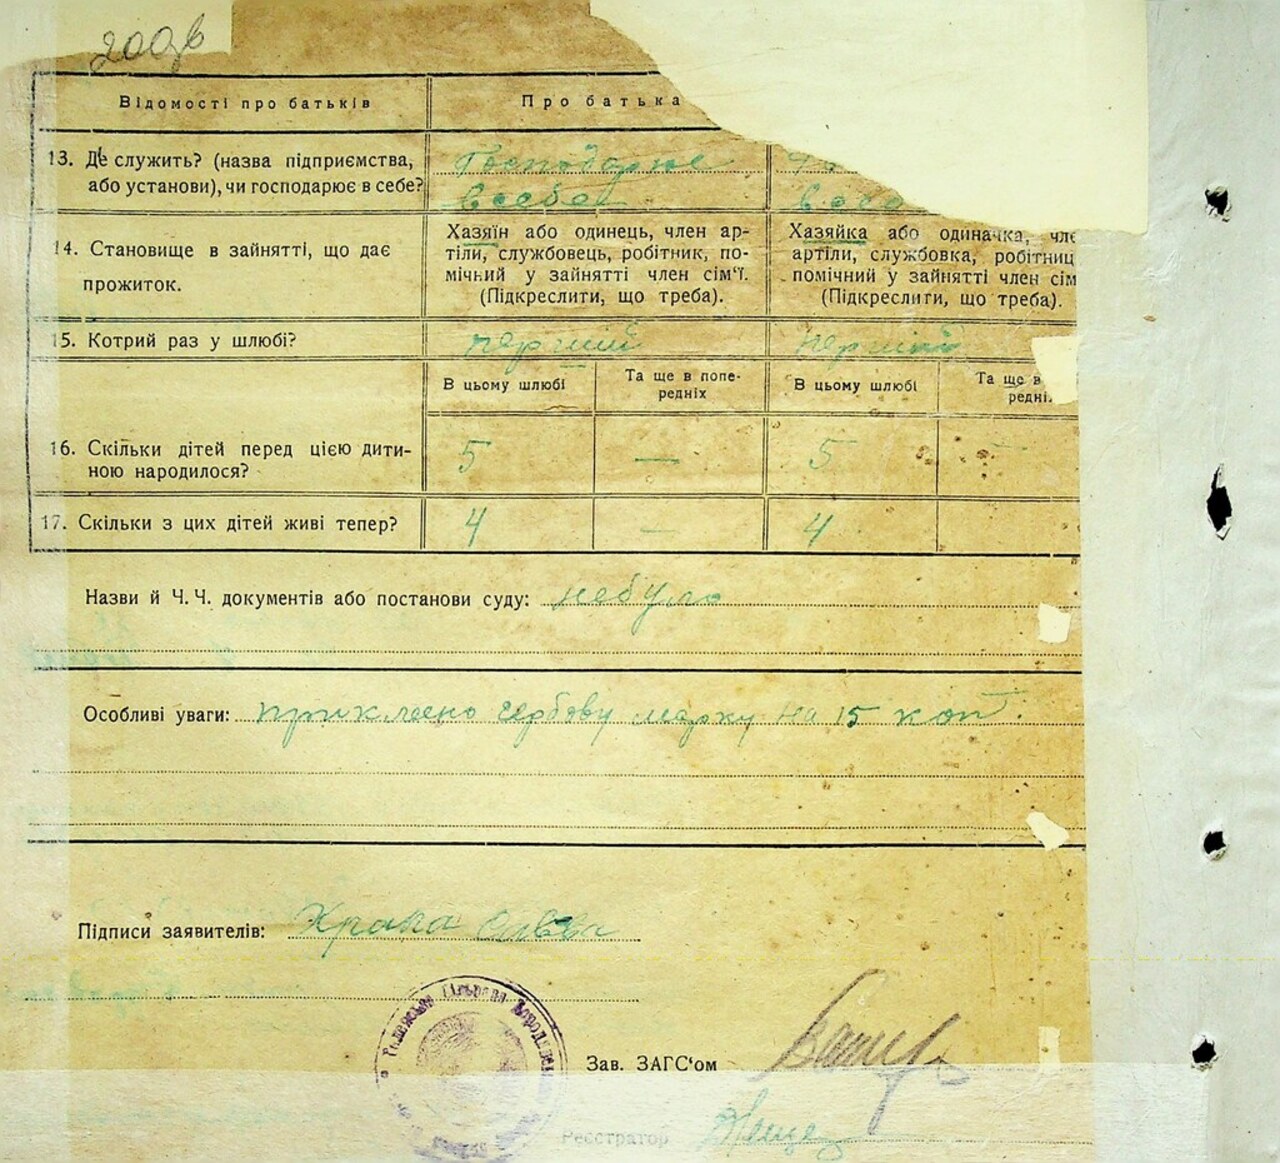 200зв
Відомості про батьків
Про батька
13. Де служить? (назва підприємства,
або установи), чи господарює в себе?
Господарює
в себе
Го
в себе
14. Становище в зайнятті, що дає
прожиток.
Хазяїн або одинець, член ар-
тіли, службовець, робітник, по-
мічний у зайнятті член сім'ї.
(Підкреслити, що треба).
Хазяйка або одиначка, чле
артіли, службовка, робітниц
помічний у зайнятті член сім
(Підкреслити, що треба).
15. Котрий раз у шлюбі?
перший
перший
В цьому шлюбі
Та ще в попе-
редніх
В цьому шлюбі
Та ще в
редніх
16. Скільки дітей перед цією дити-
ною народилося?
5 — 5 —
17. Скільки з цих дітей живі тепер?
4 — 4
Назви й Ч. Ч. документів або постанови суду: небуло
Особливі уваги: приклеєно гербову марку на 15 коп.
Підписи заявителів:
Зав. ЗАГС'ом
Реєстратор